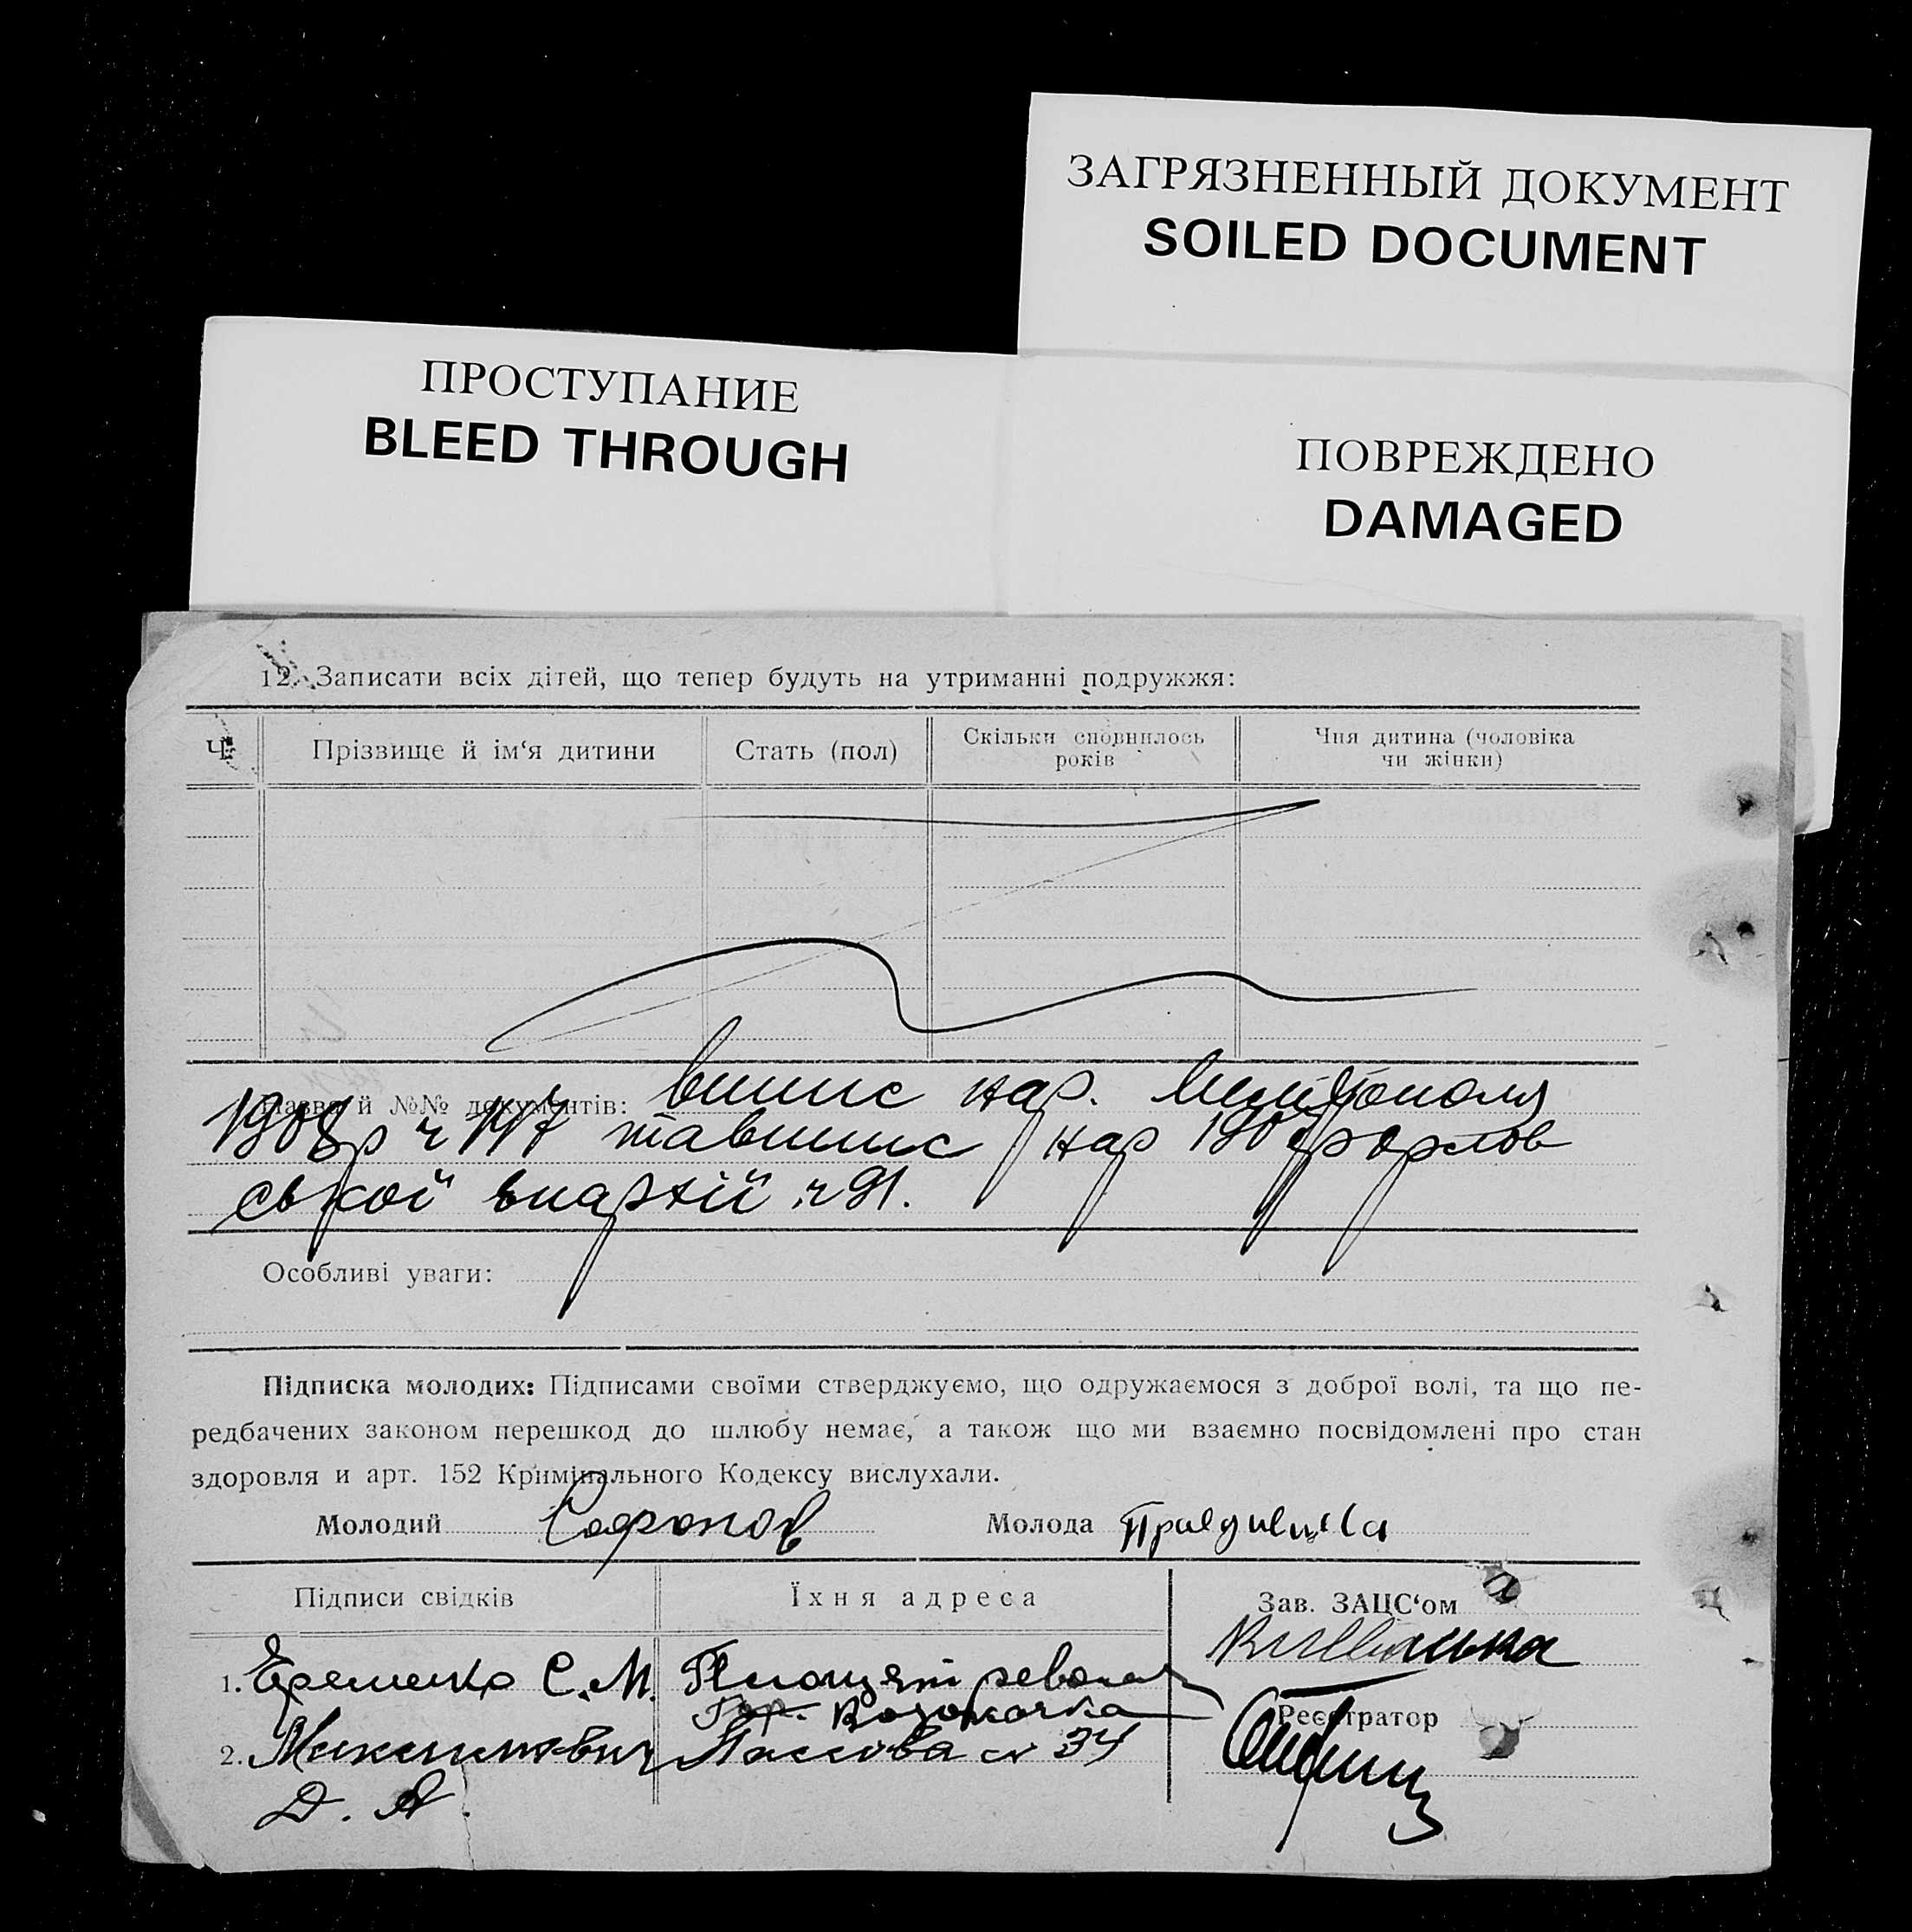 ЗАГРЯЗНЕННЫЙ ДОКУМЕНТ
SOILED DOCUMENT
ПРОСТУПАНИЕ
BLEED THROUGH
ПОВРЕЖДЕНО
DAMAGED
12. Записати всіх дітей, що тепер будуть на утриманні подружжя:
Ч.
Прізвище й ім‘я дитини
Стать (пол)
Скільки сповнилось років
Чия дитина (чоловіка чи жінки)
Назва й №№ документів: випис нар.
1908р ч 147 та випис нар
ської ч 91.
Особливі уваги:
Підписка молодих: Підписами своїми стверджуємо, що одружаємося з доброї волі, та що пе-
редбачених законом перешкод до шлюбу немає, а також що ми взаємно посвідомлені про стан
здоровля и арт. 152 Кримінального Кодексу вислухали.
Молодий Софронов Молода
Підписи свідків
Їхня адреса
Зав. ЗАЦС‘ом
1. Еременко С.М.
Реєстратор
2. ст 34
Д. А.